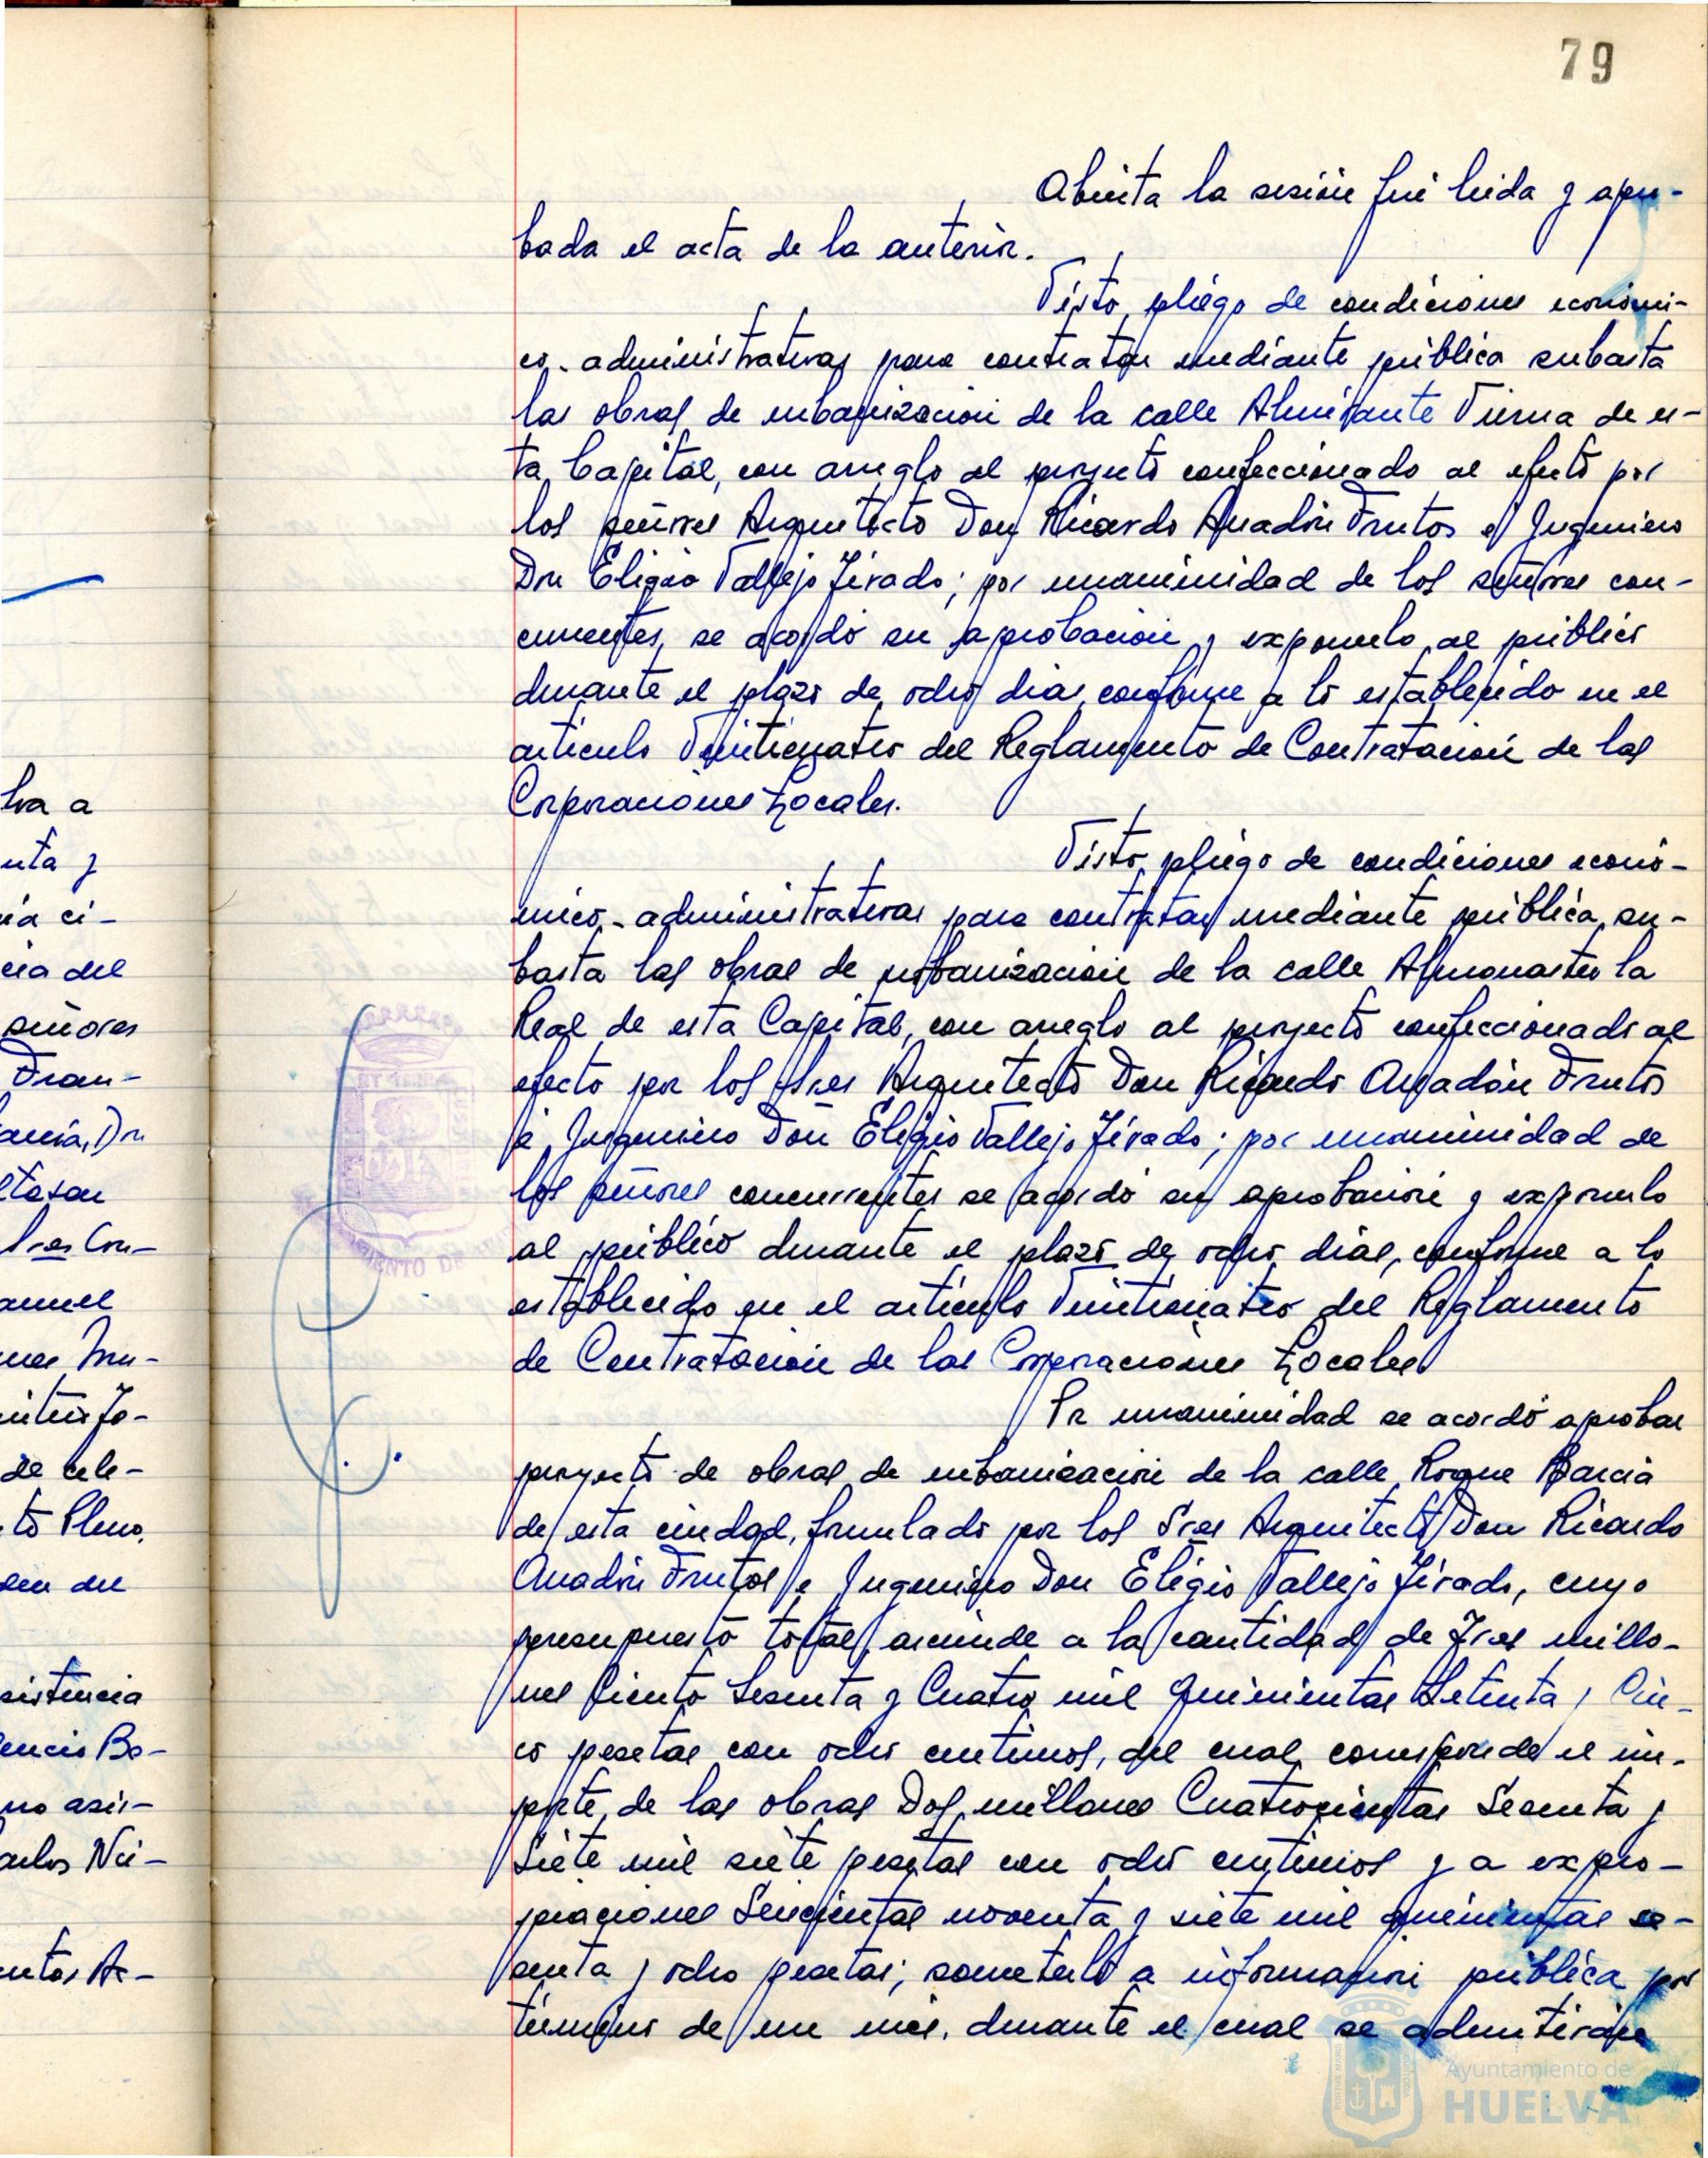 79
Abierta la sesión fué leida y apro-
bada el acta de la anterior.
Visto pliego de condiciones económi-
co-administrativas para contratar mediante pública subasta
las obras de urbanización de la calle Almirante Vierna de es-
ta Capital, con arreglo al proyecto confeccionado al efecto por
los señores Arquitecto Don Ricardo Anadón Frutos e Ingeniero
Don Eligio Vallejo Tirado; por unanimidad de los señores con-
currentes, se acordó su aprobación y exponerlo al público
durante el plazo de ocho dias, conforme a lo establecido en el
articulo Veinticuatro del Reglamento de Contratación de las
Corporaciones Locales.
Visto pliego de condiciones econó-
mico-administrativas para contratar mediante pública su-
basta las obras de urbanización de la calle Almonaster la
Real de esta Capital, con arreglo al proyecto confeccionado al
efecto por los Sres Arquitecto Don Ricardo Anadón Frutos
e Ingeniero Don Eligio Vallejo Tirado; por unanimidad de
los señores concurrentes se acordó su aprobación y exponerlo
al público durante el plazo de ocho dias, conforme a lo
establecido en el artículo Veinticuatro del Reglamento
de Contratación de las Corporaciones Locales
Por unanimidad se acordó aprobar
proyecto de obras de urbanización de la calle Roque Barcia
de esta ciudad, formulado por los Sres Arquitecto Don Ricardo
Anadón Frutos e Ingeniero Don Eligio Vallejo Tirado, cuyo
presupuesto total asciende a la cantidad de Tres millo-
nes Ciento Sesenta y Cuatro mil Quinientas Setenta y Cin-
co pesetas con ocho centimos, del cual corresponde el im-
porte de las obras Dos millones Cuatrocientas Sesenta y
Siete mil siete pesetas con ocho centimos y a expro-
piaciones Seiscientas noventa y siete mil quinientas se-
senta y ocho pesetas; someterlo a información pública por
término de un mes, durante el cual se admitirán
lva a
nta y
cia del
señores
Fran-
arcía, Don
ltasar
Sres Con-
anuel
de cele-
to Pleno,
den del
sistencia
encio Bo-
no asis-
arlos Nú-
Ayuntamiento de
HUELVA